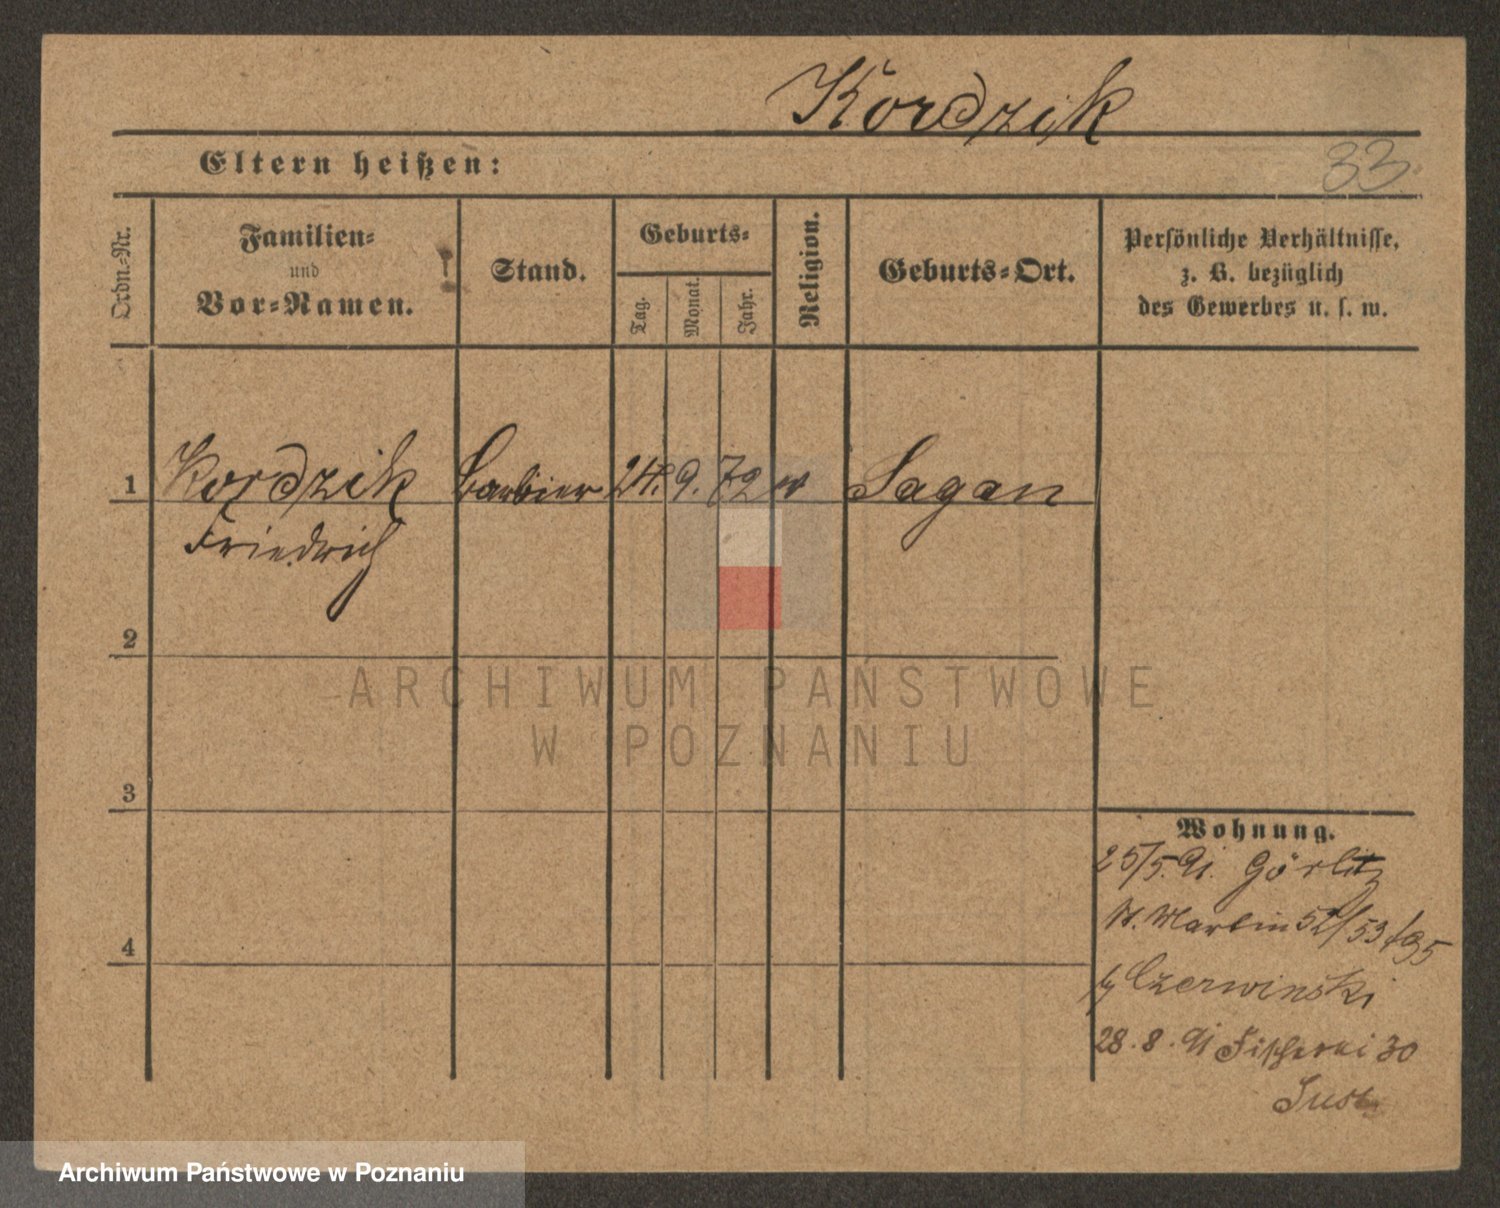 Kordzik
Eltern heißen:
33.
Ordn.-Nr.
Familien-
und
Vor-Namen.
Stand.
Geburts-
Tag.
Monat.
Jahr.
Religion.
Geburts-Ort.
Persönliche Verhältnisse,
z. B. bezüglich
des Gewerbes u. s. w.
1 Kordzik Barbier 24. 9. 72 Sagan
Friedrich
2
ARCHIWUM PAŃSTWOWE
W POZNANIU
3
Wohnung.
25/5. 91. Görlitz
St. Martin 52/53
4
Czerwinski
28. 8. 91 Fischerei 30
Archiwum Państwowe w Poznaniu